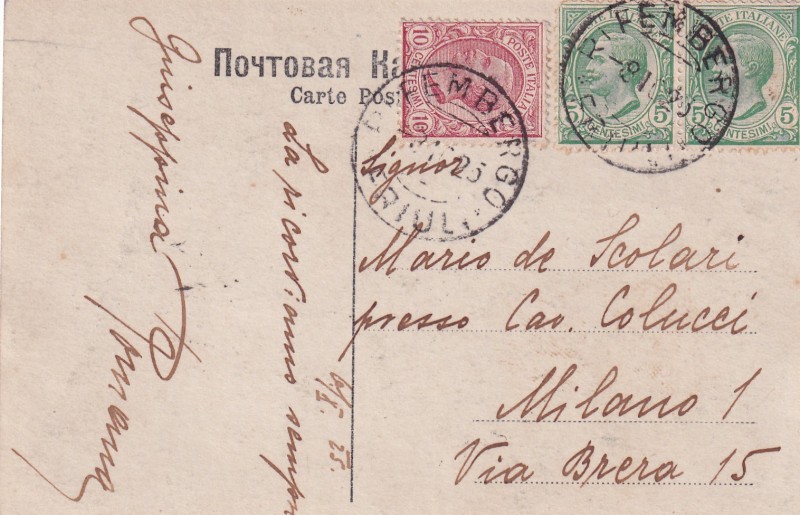 Почтовая Ка
Carte Post
10 CENTESIMI 10
POSTE ITALIANE
5 CENTESIMI 5
POSTE ITALIANE
5 CENTESIMI 5
RIVEMBERGO
FRIULI
RIFEMBERGO
Signor
Mario de Scolari
presso Cav. Colucci
Milano 1
Via Brera 15
6/X. 25.
La ricordiamo sempre
Giuseppina